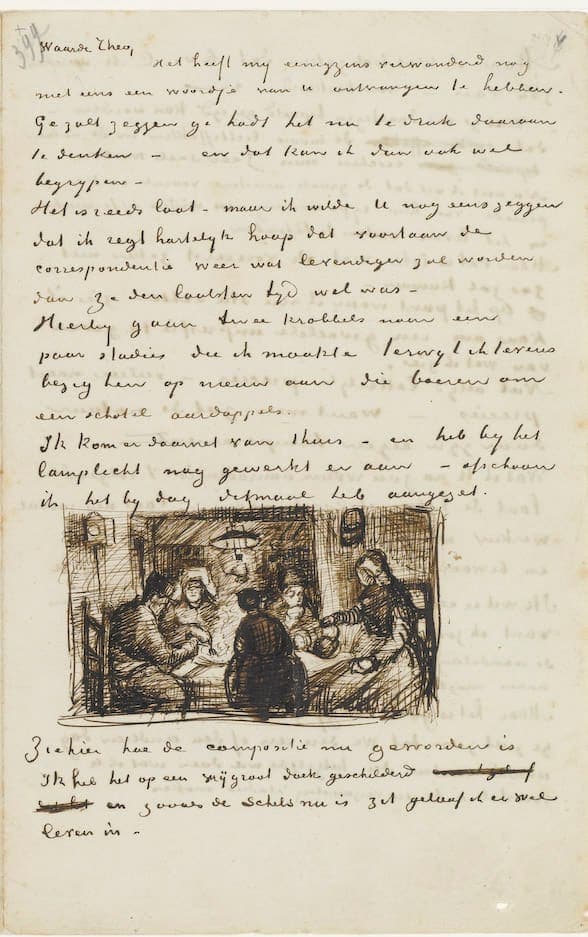 394
Waarde Theo,
Het heeft mij eenigzins verwonderd nog
niet eens een woordje van U ontvangen te hebben.
Ge zult zeggen ge hadt het nu te druk daaraan
te denken – en dat kan ik dan ook wel
begrijpen –
Het is reeds laat – maar ik wilde U nog eens zeggen
dat ik regt hartelijk hoop dat voortaan de
correspondentie weer wat levendiger zal worden
dan ze den laatsten tijd wel was –
Hierby gaan twee krabbels naar een
paar studies die ik maakte terwyl ik tevens
bezig ben op nieuw aan die boeren om
een schotel aardappels.
Ik kom er daarnet van thuis – en heb by het
lamplicht nog gewerkt er aan – ofschoon
ik het by dag ditmaal heb aangezet.
Ziehier hoe de compositie nu geworden is
Ik heb het op een vrijgroot doek geschilderd
en zooals de schets nu is zit geloof ik er wel
leven in –